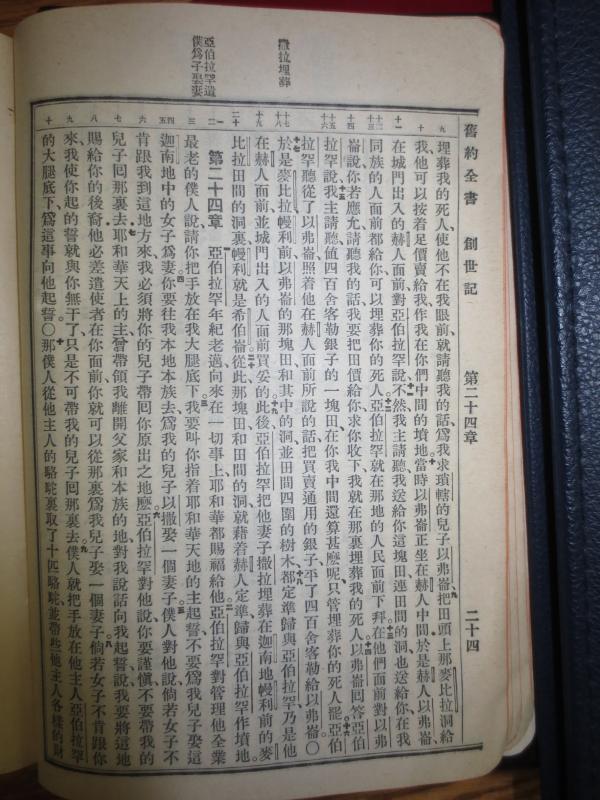 舊約全書 創世記 第二十四章 二十四
撒拉埋葬
亞伯拉罕遣
僕爲子娶妻
埋葬我的死人、使他不在我眼前、就請聽我的話、爲我求瑣轄的兒子以弗崙、把田頭上那麥比拉洞給
我、他可以按着足價賣給我、作我在你們中間的墳地。當時以弗崙正坐在赫人中間、於是赫人以弗崙
在城門出入的赫人面前、對亞伯拉罕說、不然、我主請聽、我送給你這塊田、連田間的洞也送給你、在我
同族的人面前都給你、可以埋葬你的死人。亞伯拉罕就在那地的人民面前下拜、在他們面前對以弗
崙說、你若應允、請聽我的話、我要把田價給你、求你收下、我就在那裏埋葬我的死人。以弗崙回答亞伯
拉罕說、我主請聽、値四百舍客勒銀子的一塊田、在你我中間還算甚麽呢、只管埋葬你的死人罷。亞伯
拉罕聽從了以弗崙、照着他在赫人面前所說的話、把買賣通用的銀子、平了四百舍客勒給以弗崙。○
於是麥比拉幔利前以弗崙的那塊田、和其中的洞、並田間四圍的樹木、都定準歸與亞伯拉罕、乃是他
在赫人面前、並城門出入的人面前買妥的。此後亞伯拉罕把他妻子撒拉埋葬在迦南地幔利前的麥
比拉田間的洞裏、幔利就是希伯崙。從此那塊田和田間的洞、就藉着赫人定準歸與亞伯拉罕作墳地。
第二十四章 亞伯拉罕年紀老邁、向來在一切事上耶和華都賜福給他。亞伯拉罕對管理他全業
最老的僕人說、請你把手放在我大腿底下。我要叫你指着耶和華天地的主起誓、不要爲我兒子娶這
迦南地中的女子爲妻。你要往我本地本族去、爲我的兒子以撒娶一個妻子。僕人對他說、倘若女子不
肯跟我到這地方來、我必須將你的兒子帶回你原出之地麽。亞伯拉罕對他說、你要謹愼、不要帶我的
兒子回那裏去。耶和華天上的主、曾帶領我離開父家和本族的地、對我說話、向我起誓說、我要將這地
賜給你的後裔、他必差遣使者在你面前、你就可以從那裏爲我兒子娶一個妻子。倘若女子不肯跟你
來、我使你起的誓就與你無干了、只是不可帶我的兒子回那裏去。僕人就把手放在他主人亞伯拉罕
的大腿底下、爲這事向他起誓。○那僕人從他主人的駱駝裏取了十匹駱駝、並帶些他主人各樣的財